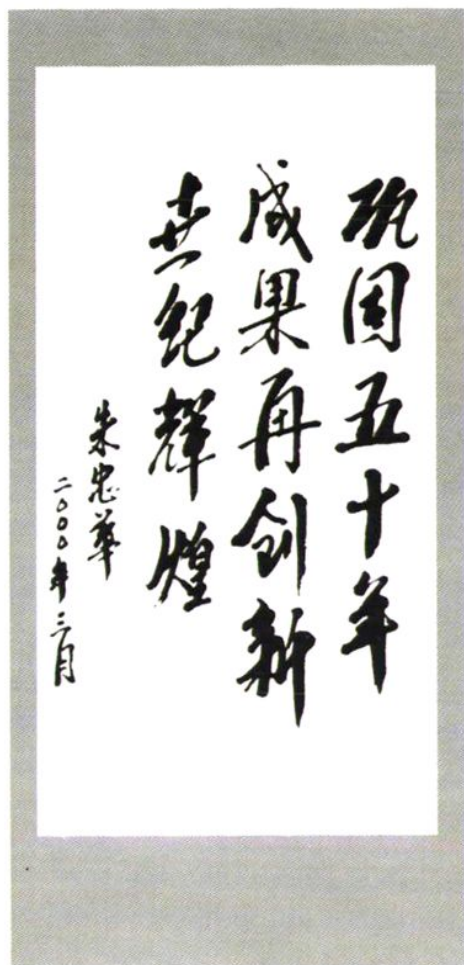 巩固五十年
成果再创新
世纪辉煌
朱忠华
二〇〇〇年三月